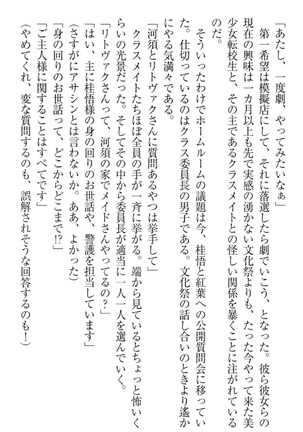 「あたし、一度劇、やってみたいなぁ」
　第一希望は模擬店にして、それに落選したら劇でいこう、となった。彼ら彼女らの
現在の興味は一カ月以上も先で実感の湧かない文化祭よりも、たった今やって来た美
少女転校生と、その主であるクラスメイトとの怪しい関係を暴くことに注がれている
のだ。
　そういったわけでホームルームの議題は今、桂悟と紅葉への公開質問会に移ってい
た。仕切っているのはクラス委員長の男子である。文化祭の話し合いのときより遙か
にやる気満々である。
「河須とリトヴァクさんに質問あるやつは挙手して」
　クラスメイトたちほぼ全員の手が一斉に挙がる。端から見ているとちょっと怖いく
らいの光景だった。そしてその中から委員長が適当に一人一人を選んでいく。
「リトヴァクさんって、河須の家でメイドさんやってるの？」
「はい、主に桂悟様の身の回りのお世話や、警護を担当しています」
（さすがにアサシンとは言わないか。ああ、よかった）
「身の回りのお世話って、どこからどこまで!?」
「ご主人様に関することはすべてです」
（やめてくれ、変な質問するのも、誤解されそうな回答するのも！）